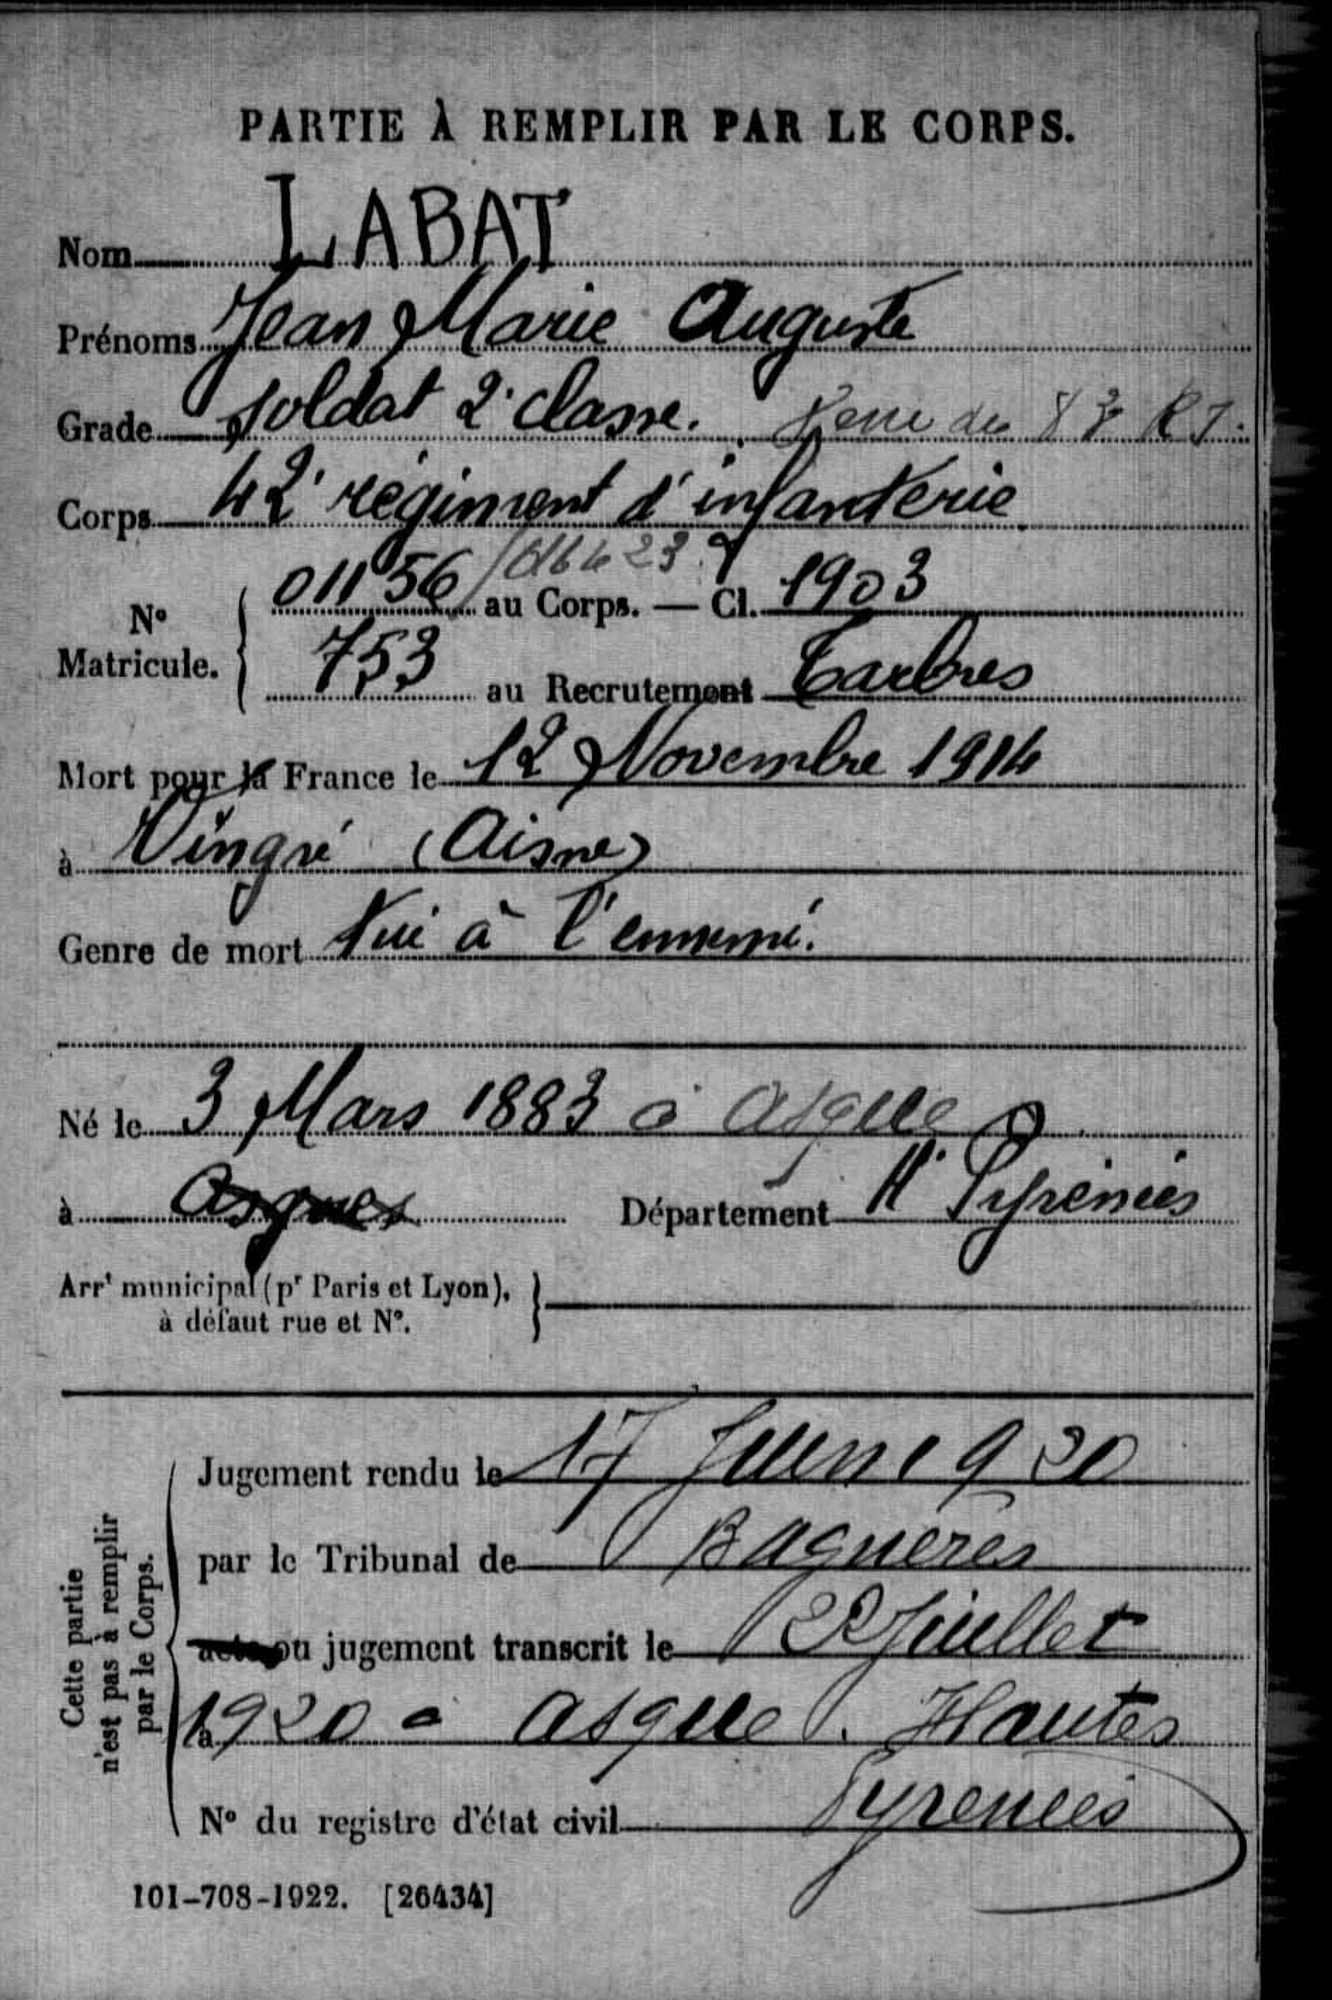 PARTIE À REMPLIR PAR LE CORPS.
Nom LABAT
Prénoms Jean Marie Auguste
Grade soldat 2e classe. Venu du 83 RI.
Corps 42e régiment d'infanterie
No Matricule. 01156 au Corps. — Cl. 1903
753 au Recrutement Tarbes
Mort pour la France le 12 Novembre 1914
à Vingré (Aisne)
Genre de mort Tué à l'ennemi.
Né le 3 Mars 1883 à Asque
à Asques Département Htes Pyrénées
Arrt municipal (pr Paris et Lyon),
à défaut rue et No.
Cette partie
n'est pas à remplir
par le Corps.
Jugement rendu le 17 Juin 1920
par le Tribunal de Bagnères
acte ou jugement transcrit le 22 Juillet
à 1920 à Asque. Hautes
No du registre d'état civil Pyrénées
101-708-1922. [26434]